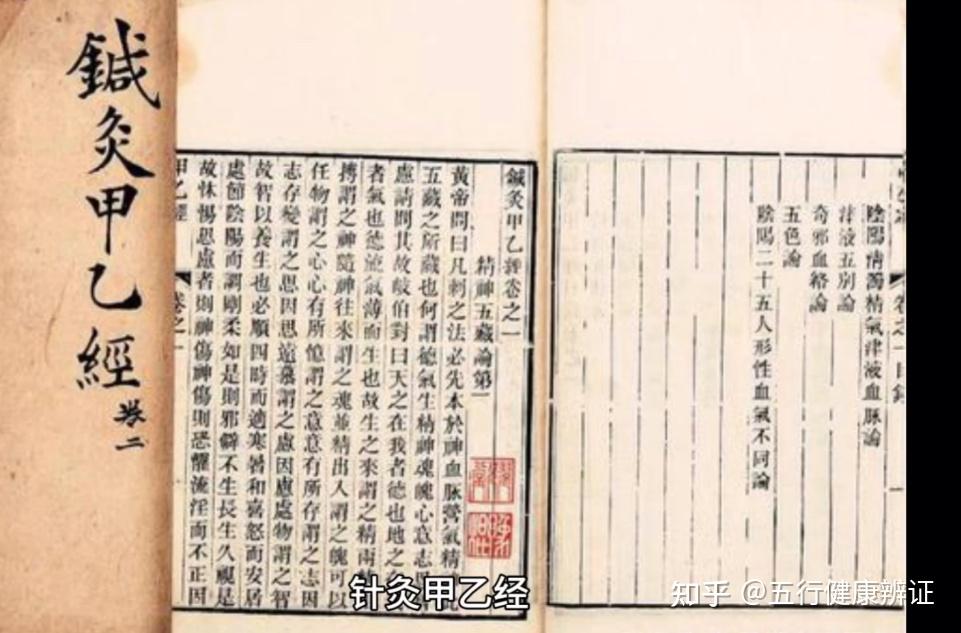 鍼灸甲乙經
卷二
卷之一目錄
陰陽清濁精氣津液血脈論
津液五別論
奇邪血絡論
五色論
陰陽二十五人形性血氣不同論
鍼灸甲乙經卷之一
精神五藏論第一
黃帝問曰凡刺之法必先本於神血脈營氣精
五藏之所藏也何謂德氣生精神魂魄心意志
慮請問其故岐伯對曰天之在我者德也地之
者氣也德流氣薄而生也故生之來謂之精兩
搏謂之神隨神往來謂之魂並精出入謂之魄可以
任物謂之心心有所憶謂之意意有所存謂之志因
志存變謂之思因思遠慕謂之慮因慮處物謂之智
故智以養生也必順四時而適寒暑和喜怒而安居
處節陰陽而調剛柔如是則邪僻不生長生久視是
故怵惕思慮者則神傷神傷則恐懼流淫而不正因
甲乙經 卷之一
针灸甲乙经
知乎 @五行健康辨证